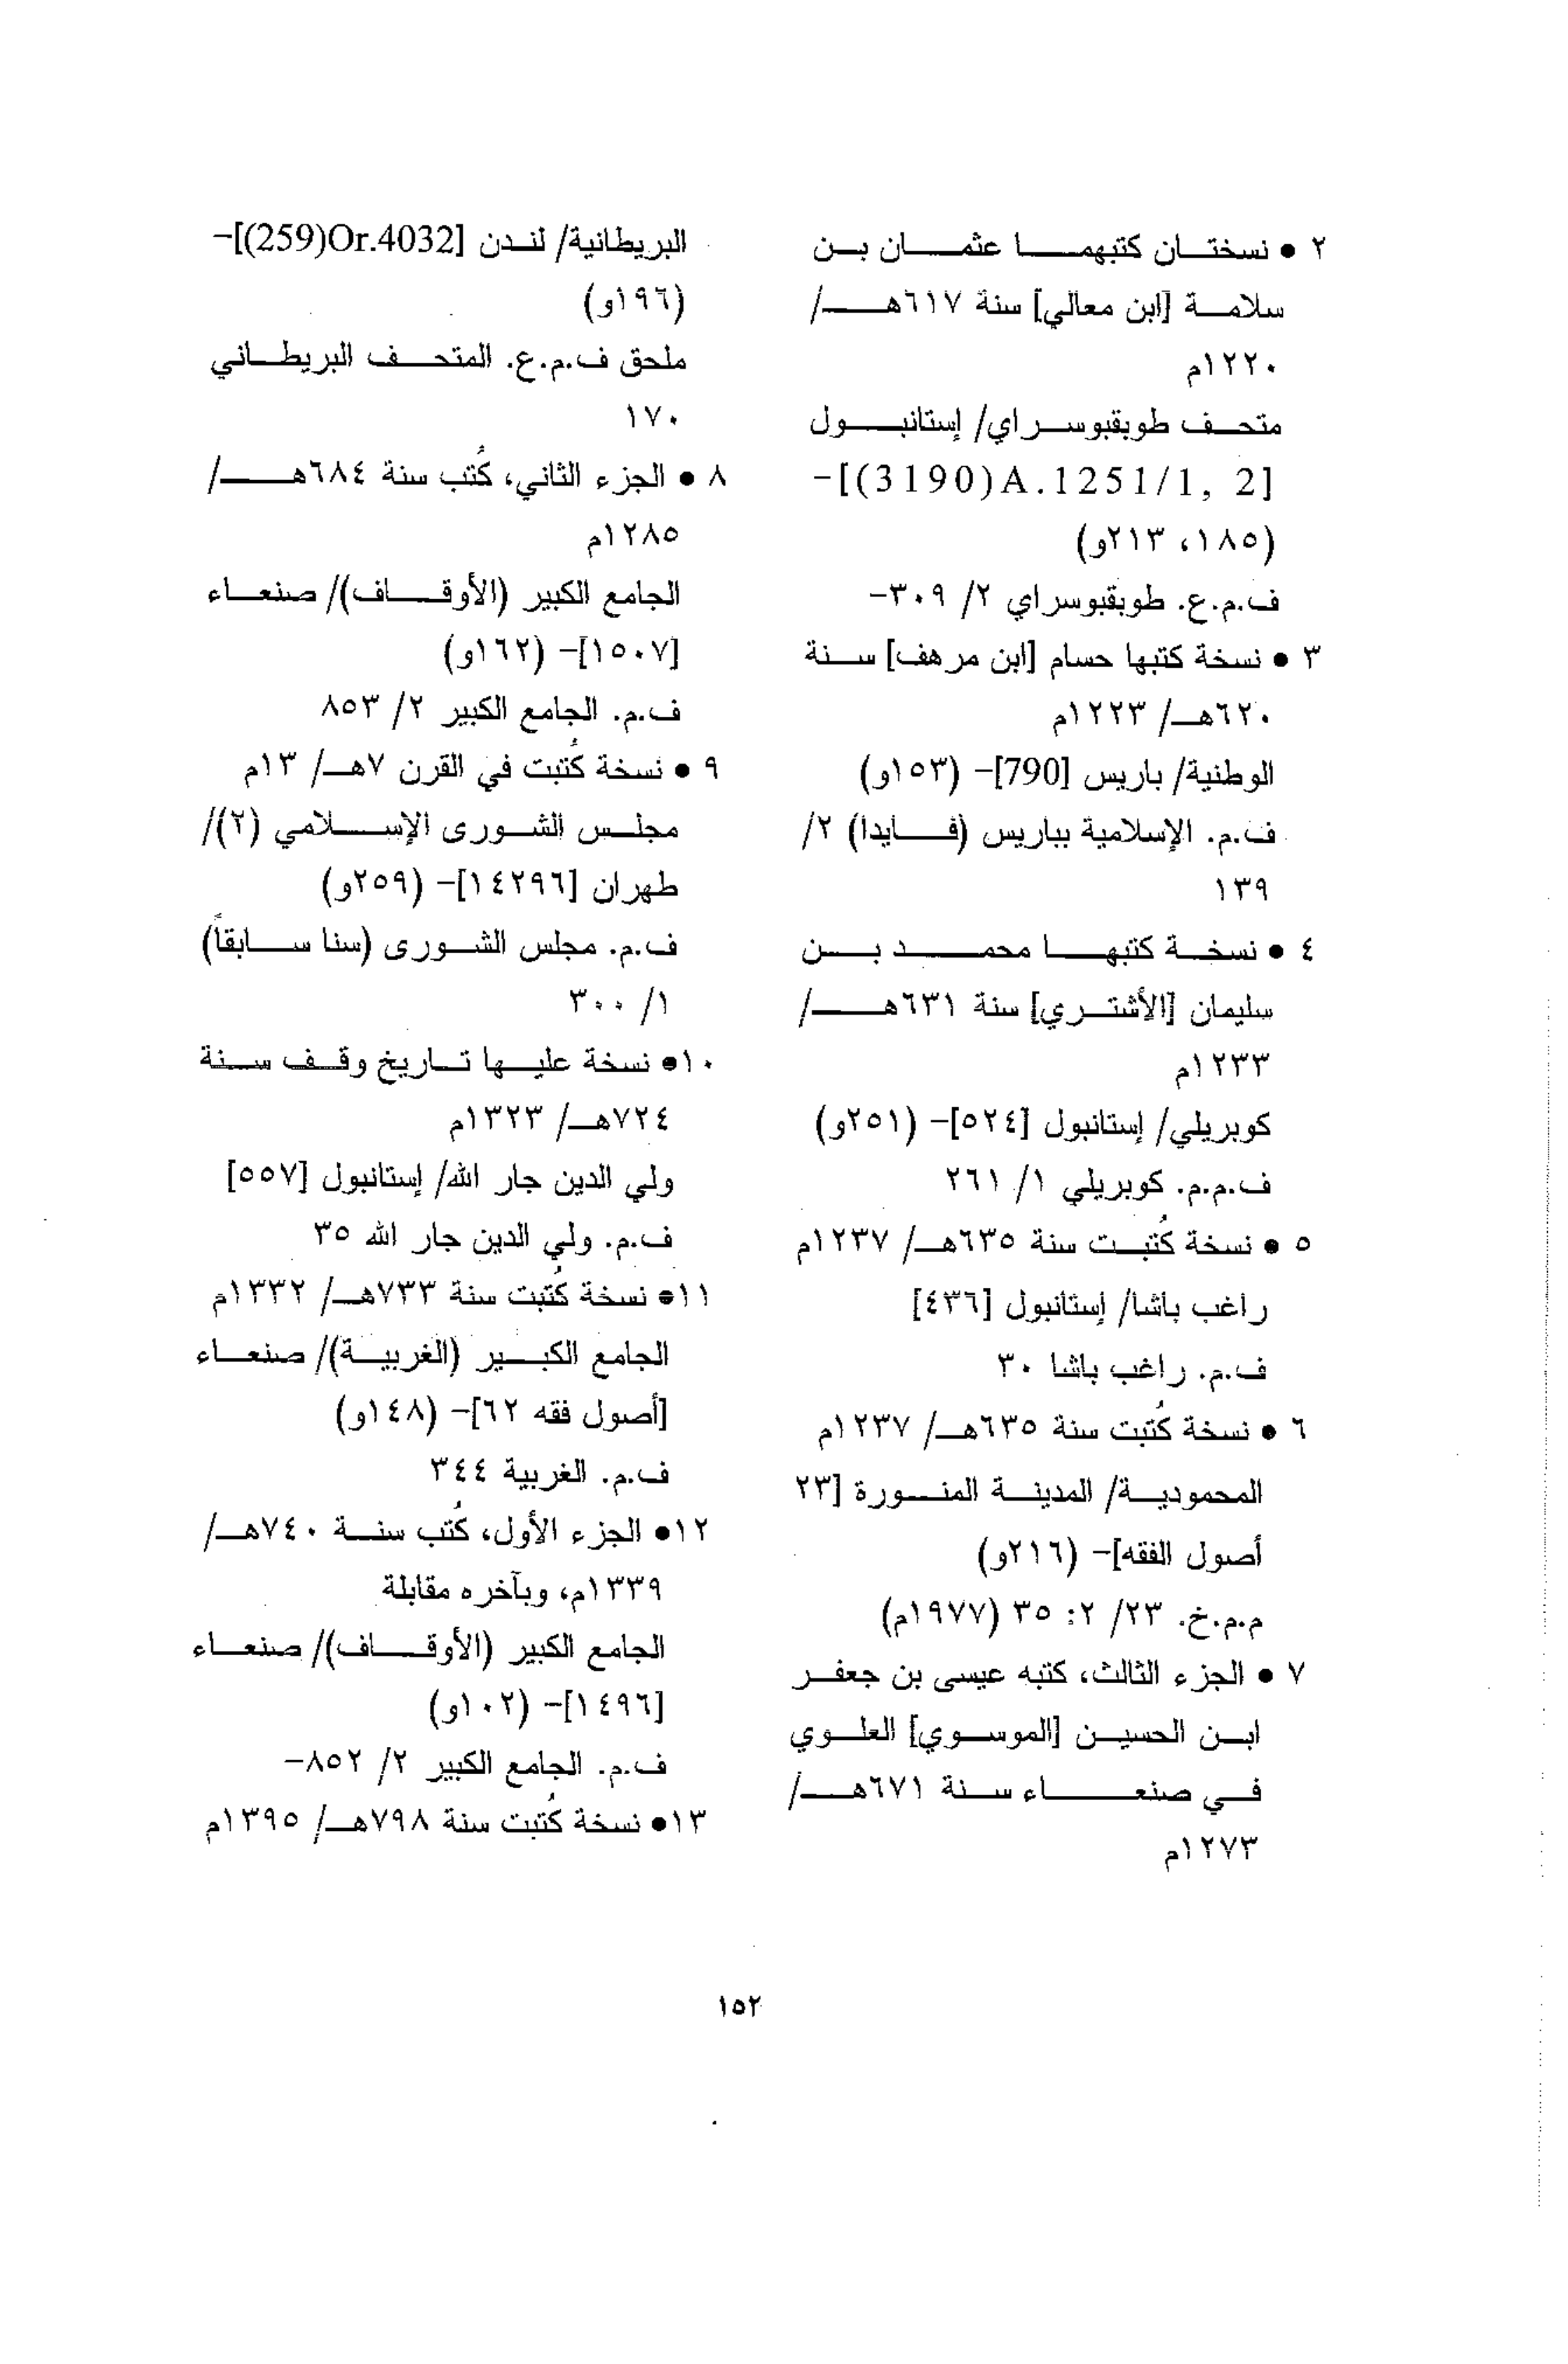 ٢ • نسختان كتبهما عثمان بن
سلامة [ابن معالي] سنة ٦١٧هـ/
١٢٢٠م
متحف طوبقبوسراي/ إستانبول
[3190)A.1251/1, 2)]-
(١٨٥، ٢١٣و)
ف.م.ع. طوبقبوسراي ٢/ ٣٠٩-
٣ • نسخة كتبها حسام [ابن مرهف] سنة
٦٢٠هـ/ ١٢٢٣م
الوطنية/ باريس [790]- (١٥٣و)
ف.م. الإسلامية بباريس (فايدا) ٢/
١٣٩
٤ • نسخة كتبها محمد بن
سليمان [الأشتري] سنة ٦٣١هـ/
١٢٣٣م
كوبريلي/ إستانبول [٥٢٤]- (٢٥١و)
ف.م.م. كوبريلي ١/ ٢٦١
٥ • نسخة كُتبت سنة ٦٣٥هـ/ ١٢٣٧م
راغب باشا/ إستانبول [٤٣٦]
ف.م. راغب باشا ٣٠
٦ • نسخة كُتبت سنة ٦٣٥هـ/ ١٢٣٧م
المحمودية/ المدينة المنورة [٢٣
أصول الفقه]- (٢١٦و)
م.م.خ. ٢٣/ ٢: ٣٥ (١٩٧٧م)
٧ • الجزء الثالث، كتبه عيسى بن جعفر
ابن الحسين [الموسوي] العلوي
في صنعاء سنة ٦٧١هـ/
١٢٧٣م
البريطانية/ لندن [259)Or.4032)]-
(١٩٦و)
ملحق ف.م.ع. المتحف البريطاني
١٧٠
٨ • الجزء الثاني، كُتب سنة ٦٨٤هـ/
١٢٨٥م
الجامع الكبير (الأوقاف)/ صنعاء
[١٥٠٧]- (١٦٢و)
ف.م. الجامع الكبير ٢/ ٨٥٣
٩ • نسخة كُتبت في القرن ٧هـ/ ١٣م
مجلس الشورى الإسلامي (٢)/
طهران [١٤٢٩٦]- (٢٥٩و)
ف.م. مجلس الشورى (سنا سابقاً)
١/ ٣٠٠
١٠• نسخة عليها تاريخ وقف سنة
٧٢٤هـ/ ١٣٢٣م
ولي الدين جار الله/ إستانبول [٥٥٧]
ف.م. ولي الدين جار الله ٣٥
١١• نسخة كُتبت سنة ٧٣٣هـ/ ١٣٣٢م
الجامع الكبير (الغربية)/ صنعاء
[أصول فقه ٦٢]- (١٤٨و)
ف.م. الغربية ٣٤٤
١٢• الجزء الأول، كُتب سنة ٧٤٠هـ/
١٣٣٩م، وبآخره مقابلة
الجامع الكبير (الأوقاف)/ صنعاء
[١٤٩٦]- (١٠٢و)
ف.م. الجامع الكبير ٢/ ٨٥٢-
١٣• نسخة كُتبت سنة ٧٩٨هـ/ ١٣٩٥م
١٥٢